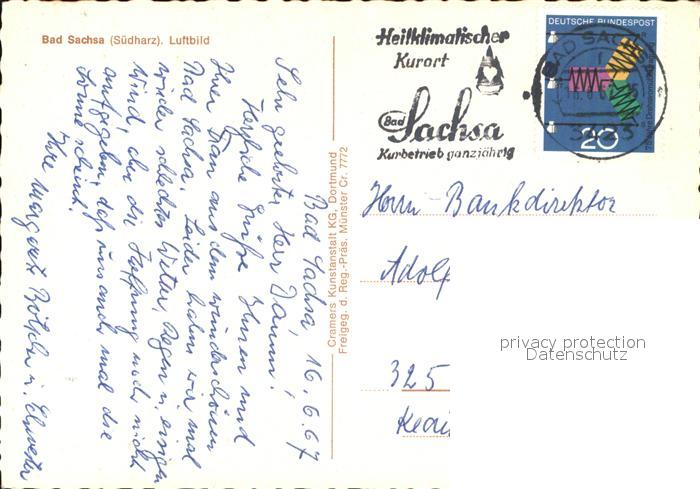 Bad Sachsa (Südharz). Luftbild
Heilklimatischer
Kurort
Bad
Sachsa
Kurbetrieb ganzjährig
DEUTSCHE BUNDESPOST
BAD SACHSA
20
Bad Sachsa, 16.6.67
Sehr geehrter Herr Daum!
Herzliche Grüße Ihnen und
Ihrer Frau aus dem wunderschönen
Bad Sachsa. Leider haben wir mal
wieder schlechtes Wetter, Regen u. eisigen
Wind, aber die Hoffnung noch nicht
aufgegeben, daß uns auch mal die
Sonne scheint.
Ihre Margaret u. Schwester
Cramers Kunstanstalt KG, Dortmund
Freigeg. d. Reg.-Präs. Münster Cr. 7772
Herrn Bankdirektor
Adolf
325
privacy protection
Datenschutz